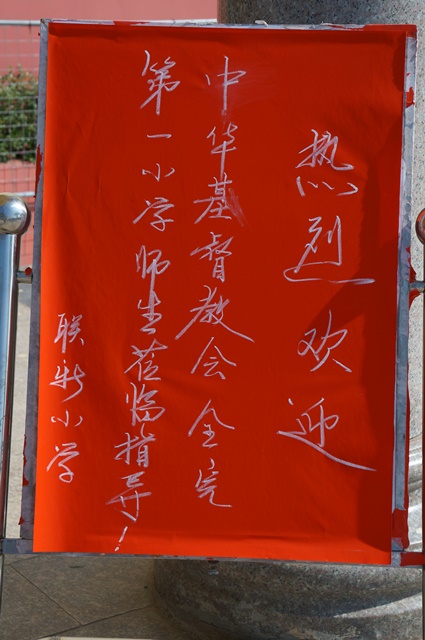 热烈欢迎
中华基督教会全完
第一小学师生莅临指导！
联新小学